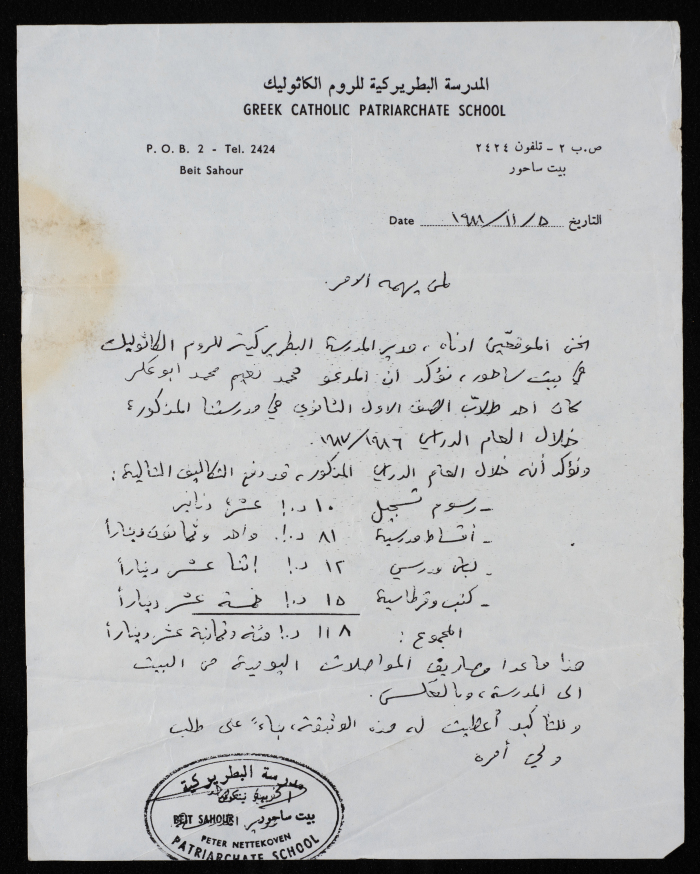 المدرسة البطريركية للروم الكاثوليك
GREEK CATHOLIC PATRIARCHATE SCHOOL
P. O. B. 2 - Tel. 2424
Beit Sahour
ص.ب ٢ - تلفون ٢٤٢٤
بيت ساحور
Date ٥/١١/١٩٨٨ التاريخ
لمن يهمه الامر.
نحن الموقعين ادناه، مدير المدرسة البطريركية للروم الكاثوليك
في بيت ساحور، نؤكد ان المدعو محمد نعيم محمد ابو عكر
كان احد طلاب الصف الاول الثانوي في مدرستنا المذكورة
خلال العام الدراسي ١٩٨٦/١٩٨٧.
ونؤكد أنه خلال العام الدراسي المذكور، قد دفع التكاليف التالية:
- رسوم تسجيل ١٠ د.ا عشرة دنانير
- أقساط مدرسية ٨١ د.ا. واحد وثمانون ديناراً
- لباس مدرسي ١٢ د.ا إثنا عشر ديناراً
- كتب وقرطاسية ١٥ د.ا خمسة عشر ديناراً
المجموع: ١١٨ د.ا مئة وثمانية عشر ديناراً
هذا ما عدا مصاريف المواصلات اليومية من البيت
الى المدرسة، وبالعكس.
وللتأكيد أعطيت له هذه الوثيقة، بناءً على طلب
ولي أمره
مدرسة البطريركية
بيت ساحور
BEIT SAHOUR
PETER NETTEKOVEN
PATRIARCHATE SCHOOL